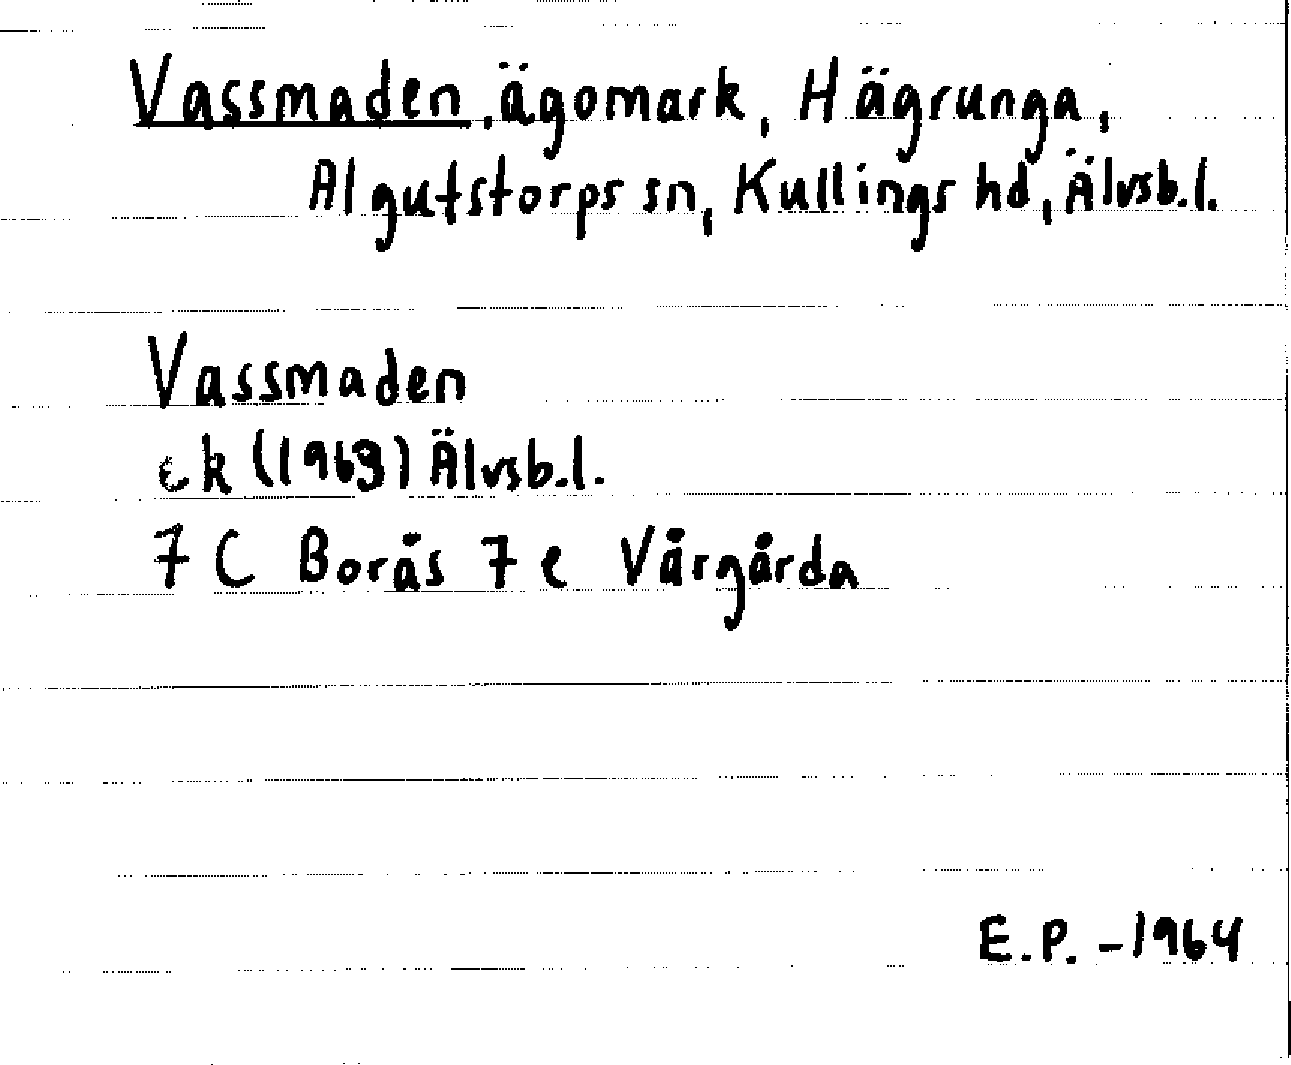 Vassmaden, ägomark, Hägrunga,
Algutstorps sn, Kullings hd, Älvsb.l.
Vassmaden
ek (1963) Älvsb.l.
7 C Borås 7 e Vårgårda
E.P. -1964